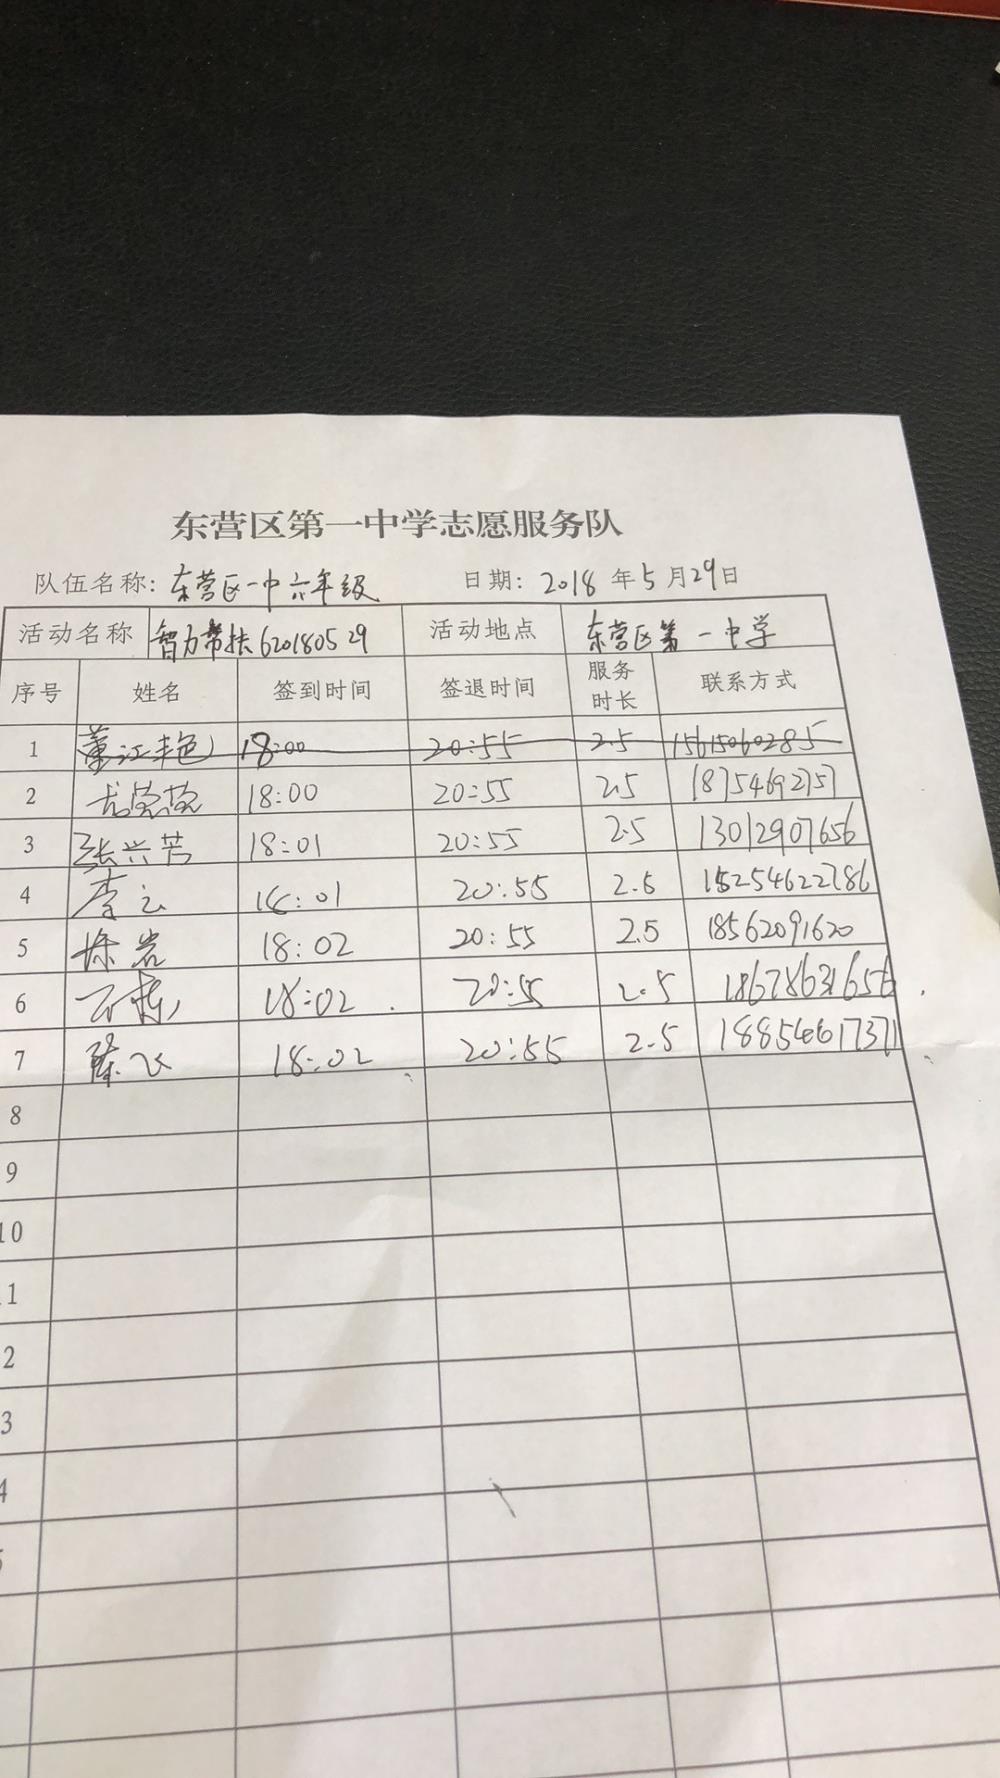 东营区第一中学志愿服务队
队伍名称: 东营区一中六年级 日期: 2018 年 5 月 29 日
活动名称 智力帮扶620180529 活动地点 东营区第一中学
序号 姓名 签到时间 签退时间 服务时长 联系方式
1 董江艳 18:00 20:55 2.5 15615060285
2 尤莹莹 18:00 20:55 2.5 18754692757
3 张兴芳 18:01 20:55 2.5 13012907656
4 李云 18:01 20:55 2.5 15254622786
5 徐岩 18:02 20:55 2.5 18562091620
6 18:02 20:55 2.5 18678631656
7 陈飞 18:02 20:55 2.5 18854617371
8
9
10
11
2
3
4
5